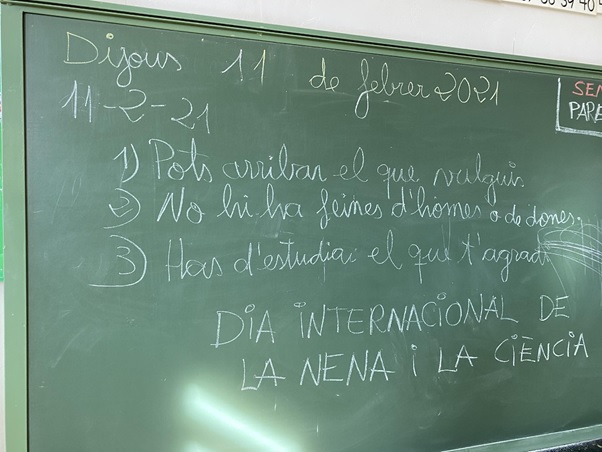 Dijous 11 de febrer 2021
11-2-21
1) Pots arribar el que vulguis
2) No hi ha feines d'homes o de dones.
3) Has d'estudiar el que t'agradi
DIA INTERNACIONAL DE
LA NENA i LA CIÈNCIA
SEN
PARE
39 40